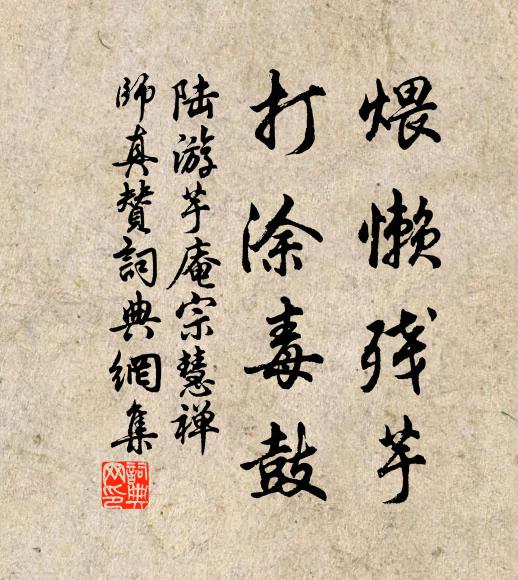 煨懒残芋
打涂毒鼓
陆游芋庵宗慧禅
师真赞词典網集
詞典网印